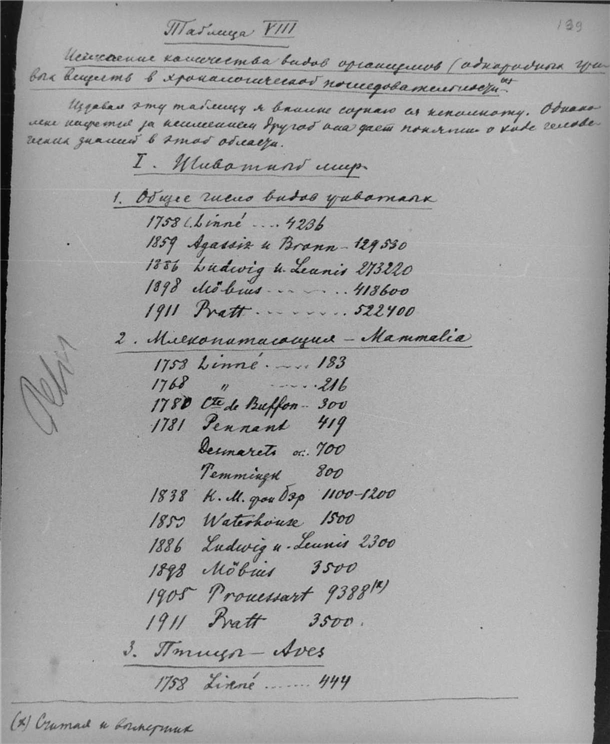 139
Таблица VIII
Исчисление количества видов организмов (однородных живых веществ в хронологической последовательности
Издавая эту таблицу я вполне сознаю ея неполноту. Однако
мне кажется за неимением другой она дает понятие о ходе человеческих знаний в этой области.
I. Животный мир.
1. Общее число видов животных
1758 Linné .... 4236
1859 Agassiz и Bronn - 129530
1886 Ludwig и Leunis 273220
1898 Möbius - - - - - 418600
1911 Pratt - - - - - 522400
2. Млекопитающия - Mammalia
1758 Linné - - - - 183
1768 " - - - - 216
1780 Cte de Buffon - 300
1781 Pennant 419
Desmarets ок. 700
Temmingk 800
1838 К. М. фон Бэр 1100-1200
1850 Waterhouse 1500
1886 Ludwig и Leunis 2300
1898 Möbius 3500
1905 Trouessart 9388 (x)
1911 Pratt 3500.
3. Птицы - Aves
1758 Linné ....... 444
(x) Считая и вымерших